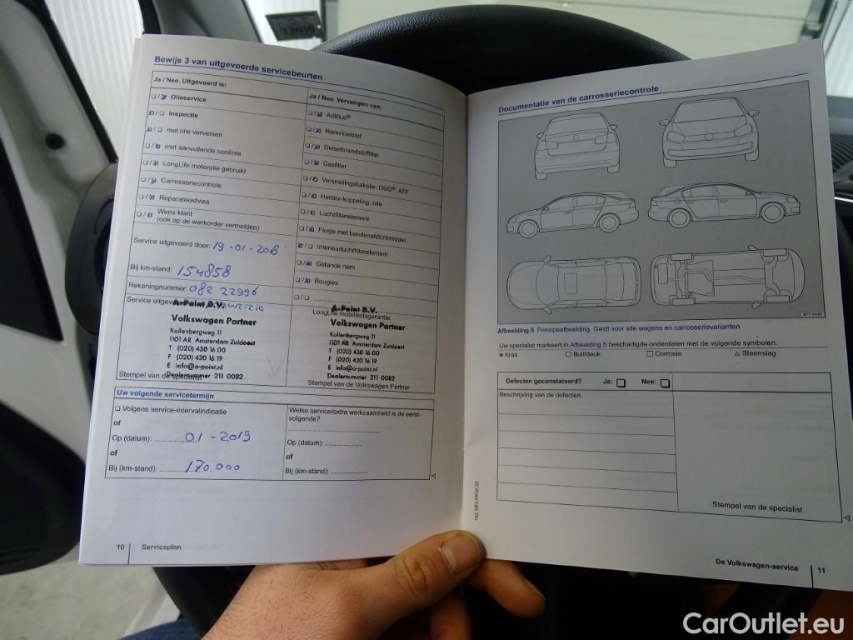 Bewijs 3 van uitgevoerde servicebeurten
Ja / Nee. Uitgevoerd is:
Olieservice
Inspectie
met olie verversen
met aanvullende controle
LongLife motorolie gebruikt
Carrosseriecontrole
Reparatieadvies
Wens klant
(ook op de werkorder vermelden)
Service uitgevoerd door: 19-01-2018
Bij km-stand: 154858
Rekeningnummer: 082 22996
Service uitgevoerd
A-Point B.V.
Volkswagen Partner
Kollenbergweg 11
1101 AR Amsterdam Zuidoost
T (020) 430 16 00
F (020) 430 16 19
E info@a-point.nl
Dealernummer 211 0082
Stempel van de specialist
Ja / Nee. Vervangen van:
AdBlue®
Remvloeistof
Dieselbrandstoffilter
Gasfilter
Versnellingsbakolie: DSQ®, ATF
Haldex-koppeling: olie
Luchtfilterelement
Flesje met bandenafdichtmiddel
Interieurluchtfilterelement
Getande riem
Bougies
LongLife mobiliteitsgarantie
A-Point B.V.
Volkswagen Partner
Kollenbergweg 11
1101 AR Amsterdam Zuidoost
T (020) 430 16 00
F (020) 430 16 19
E info@a-point.nl
Dealernummer 211 0082
Stempel van de Volkswagen Partner
Uw volgende servicetermijn
Volgens service-intervalindicatie
of
Op (datum): 01-2019
of
Bij (km-stand): 170.000
Welke service/extra werkzaamheid is de eerst-
volgende?
Op (datum):
of
Bij (km-stand):
10 Serviceplan
Documentatie van de carrosseriecontrole
Afbeelding 5 Principeafbeelding. Geldt voor alle wagens en carrosserievarianten
Uw specialist markeert in Afbeelding 5 beschadigde onderdelen met de volgende symbolen:
× Kras ○ Buil/deuk □ Corrosie △ Steenslag
Defecten geconstateerd? Ja: Nee:
Beschrijving van de defecten:
Stempel van de specialist
De Volkswagen-service 11
CarOutlet.eu